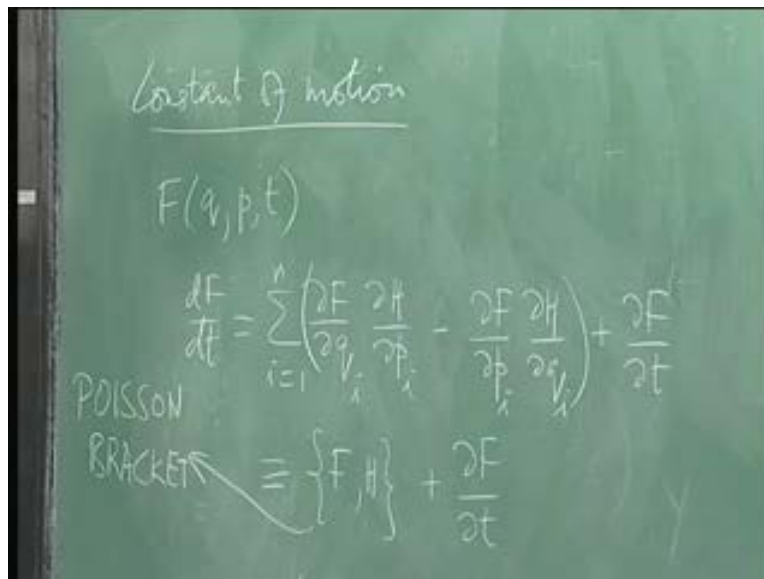 Constant of motion
F(q,p,t)
dF/dt = ∑_{i=1}^{n} (∂F/∂q_i ∂H/∂p_i - ∂F/∂p_i ∂H/∂q_i) + ∂F/∂t
POISSON
BRACKET
≡ {F,H} + ∂F/∂t